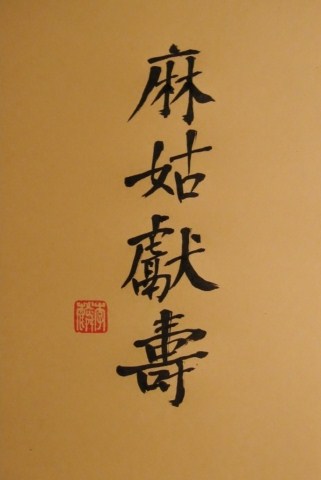 麻姑獻壽